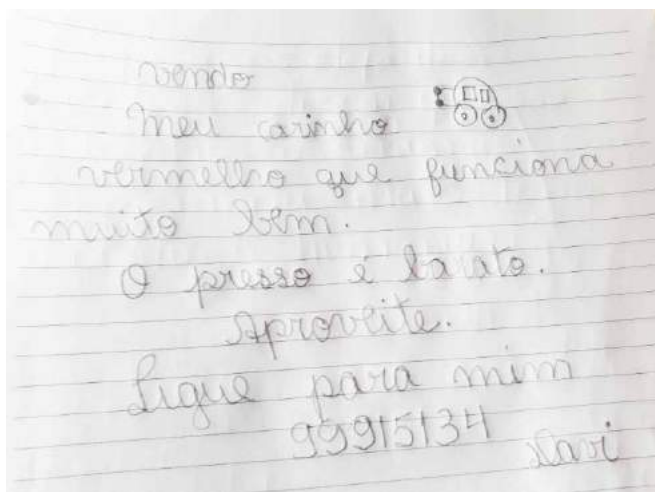 vendo
Meu carinho
vermelho que funciona
muito bem.
O presso é barato.
Aproveite.
Ligue para mim
99915134
Davi